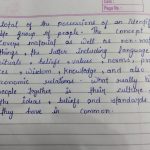 total of the possessions of an identif
ble group of people. The concept
covers material as well as non-mat
things, the latter including language
rituals, beliefs, values, norms, pra
ces, wisdom, knowledge, and also
economic relations. What really ti
people together is their culture -
the ideas, beliefs and standards
they have in common.